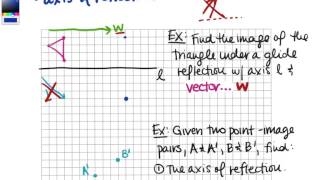 axis of reflec
w
Ex: Find the image of the
triangle under a glide
reflection w/ axis l &
vector... w
l
Ex: Given two point-image
pairs, A & A', B & B', find:
① The axis of reflection.
B'
A'